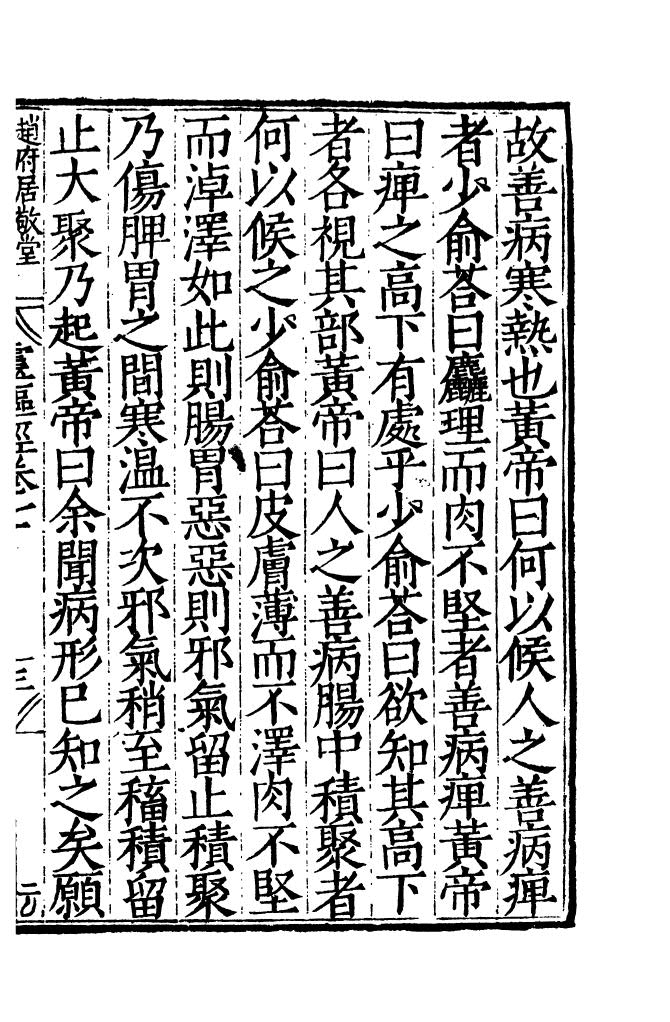 故善病寒熱也黃帝曰何以候人之善病痺
者少俞荅曰麤理而肉不堅者善病痺黃帝
曰痺之高下有處乎少俞荅曰欲知其高下
者各視其部黃帝曰人之善病腸中積聚者
何以候之少俞荅曰皮膚薄而不澤肉不堅
而淖澤如此則腸胃惡惡則邪氣留止積聚
乃傷脾胃之間寒温不次邪氣稍至稸積留
止大聚乃起黃帝曰余聞病形已知之矣願
趙府居敬堂 靈樞經卷七 三